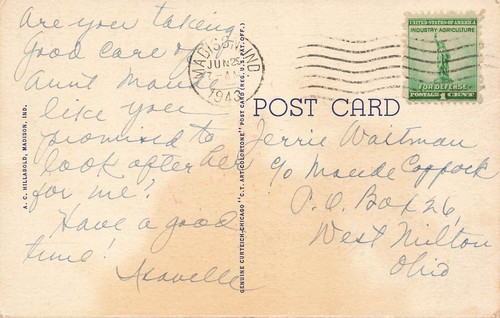 Are you taking
Good care of
Aunt Maude
like you
promised to
look after her
for me?
Have a good
time!
Isavelle
A. C. HILLABOLD, MADISON, IND.
GENUINE CURTEICH-CHICAGO "C.T. ART-COLORTONE" POST CARD (REG. U.S. PAT. OFF.)
MADISON, IND.
JUN 25
AM
1943
UNITED STATES OF AMERICA
INDUSTRY AGRICULTURE
FOR DEFENSE
POSTAGE 1 CENT
POST CARD
Jerrie Waitman
c/o Maude Coppock
P.O. Box 26,
West Milton
Ohio